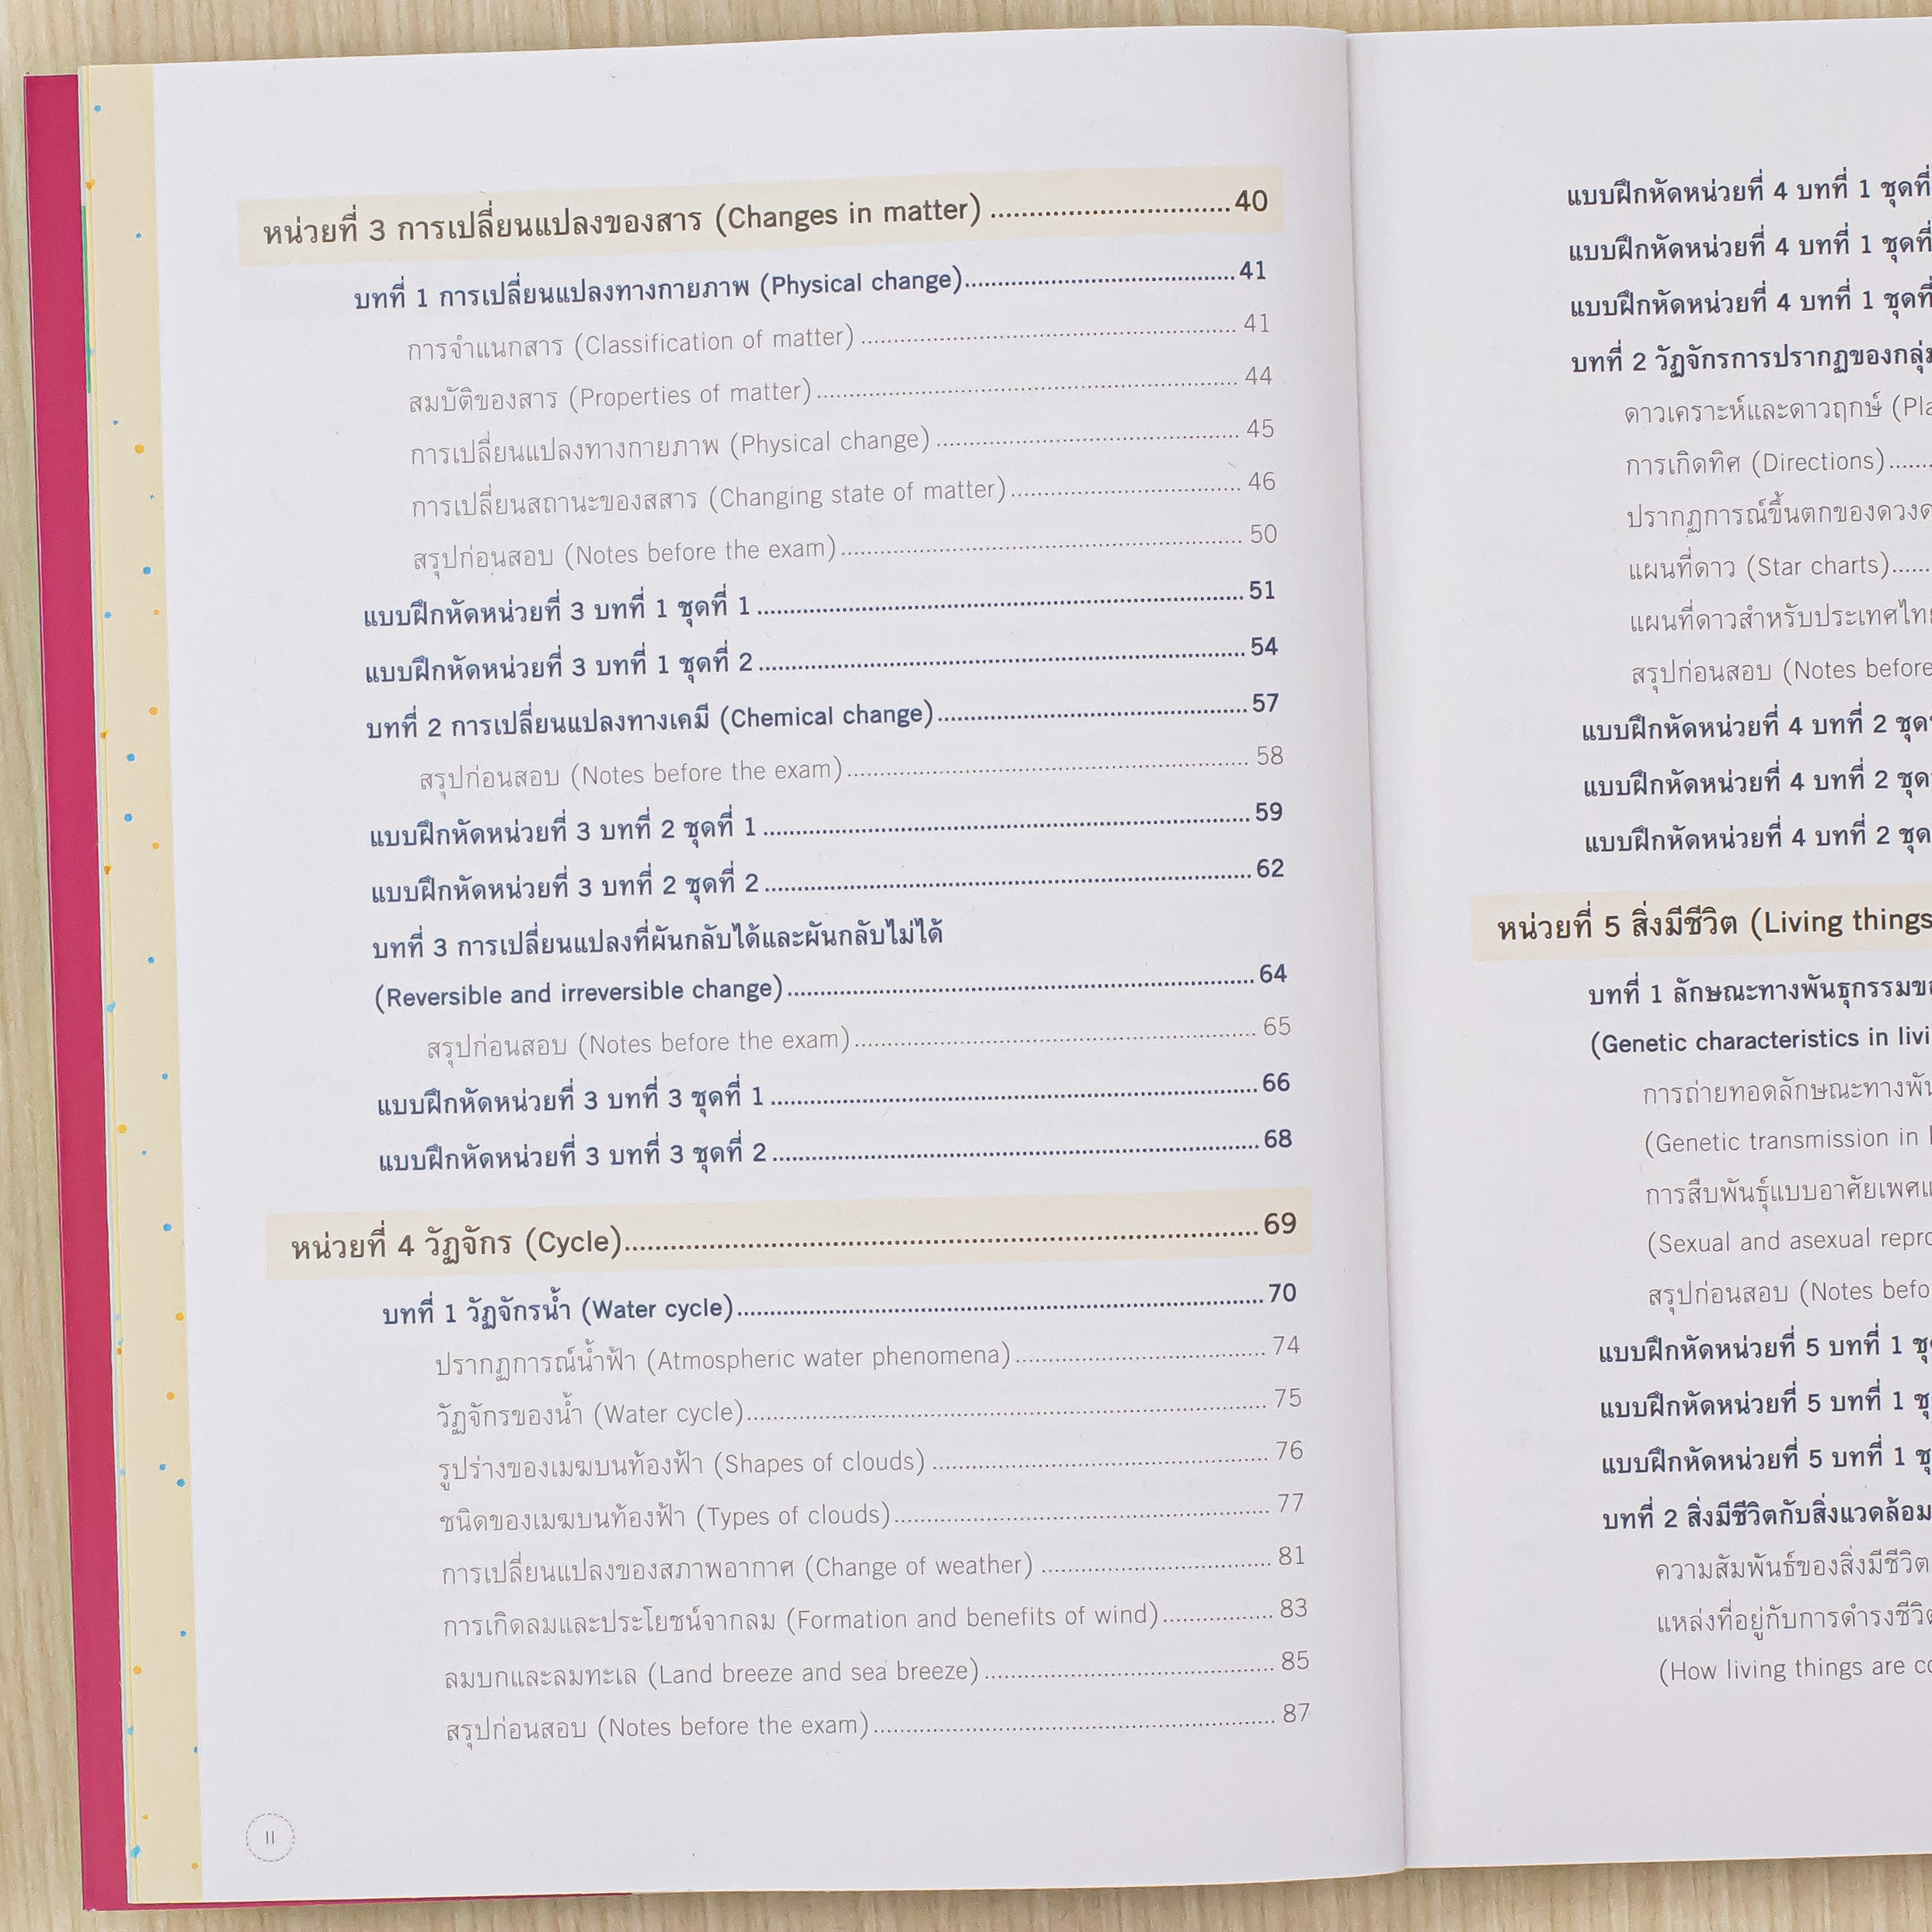 หน่วยที่ 3 การเปลี่ยนแปลงของสาร (Changes in matter) ........................ 40
บทที่ 1 การเปลี่ยนแปลงทางกายภาพ (Physical change)........................ 41
การจำแนกสาร (Classification of matter) ........................ 41
สมบัติของสาร (Properties of matter) ........................ 44
การเปลี่ยนแปลงทางกายภาพ (Physical change) ........................ 45
การเปลี่ยนสถานะของสสาร (Changing state of matter) ........................ 46
สรุปก่อนสอบ (Notes before the exam) ........................ 50
แบบฝึกหัดหน่วยที่ 3 บทที่ 1 ชุดที่ 1 ........................ 51
แบบฝึกหัดหน่วยที่ 3 บทที่ 1 ชุดที่ 2 ........................ 54
บทที่ 2 การเปลี่ยนแปลงทางเคมี (Chemical change) ........................ 57
สรุปก่อนสอบ (Notes before the exam) ........................ 58
แบบฝึกหัดหน่วยที่ 3 บทที่ 2 ชุดที่ 1 ........................ 59
แบบฝึกหัดหน่วยที่ 3 บทที่ 2 ชุดที่ 2 ........................ 62
บทที่ 3 การเปลี่ยนแปลงที่ผันกลับได้และผันกลับไม่ได้
(Reversible and irreversible change) ........................ 64
สรุปก่อนสอบ (Notes before the exam) ........................ 65
แบบฝึกหัดหน่วยที่ 3 บทที่ 3 ชุดที่ 1 ........................ 66
แบบฝึกหัดหน่วยที่ 3 บทที่ 3 ชุดที่ 2 ........................ 68
หน่วยที่ 4 วัฏจักร (Cycle) ........................ 69
บทที่ 1 วัฏจักรน้ำ (Water cycle) ........................ 70
ปรากฏการณ์น้ำฟ้า (Atmospheric water phenomena) ........................ 74
วัฏจักรของน้ำ (Water cycle) ........................ 75
รูปร่างของเมฆบนท้องฟ้า (Shapes of clouds) ........................ 76
ชนิดของเมฆบนท้องฟ้า (Types of clouds) ........................ 77
การเปลี่ยนแปลงของสภาพอากาศ (Change of weather) ........................ 81
การเกิดลมและประโยชน์จากลม (Formation and benefits of wind) ............... 83
ลมบกและลมทะเล (Land breeze and sea breeze) ........................ 85
สรุปก่อนสอบ (Notes before the exam) ........................ 87
II
แบบฝึกหัดหน่วยที่ 4 บทที่ 1 ชุดที่
แบบฝึกหัดหน่วยที่ 4 บทที่ 1 ชุดที่
แบบฝึกหัดหน่วยที่ 4 บทที่ 1 ชุดที่
บทที่ 2 วัฏจักรการปรากฏของ
ดาวเคราะห์และดาวฤกษ์
การเกิดทิศ (Directions) .......
ปรากฏการณ์ขึ้นตกของ
แผนที่ดาว (Star charts) ......
แผนที่ดาวสำหรับประเทศ
สรุปก่อนสอบ (Notes before
แบบฝึกหัดหน่วยที่ 4 บทที่ 2
แบบฝึกหัดหน่วยที่ 4 บทที่ 2
แบบฝึกหัดหน่วยที่ 4 บทที่ 2
หน่วยที่ 5 สิ่งมีชีวิต (Living things
บทที่ 1 ลักษณะทางพันธุกรรม
(Genetic characteristics in
การถ่ายทอดลักษณะทาง
(Genetic transmission in
การสืบพันธุ์แบบอาศัยเพศ
(Sexual and asexual
สรุปก่อนสอบ (Notes
แบบฝึกหัดหน่วยที่ 5 บทที่ 1
แบบฝึกหัดหน่วยที่ 5 บทที่ 1
แบบฝึกหัดหน่วยที่ 5 บทที่ 1
บทที่ 2 สิ่งมีชีวิตกับสิ่งแวดล้อม
ความสัมพันธ์ของสิ่งมีชีวิต
แหล่งที่อยู่กับการดำรง
(How living things are